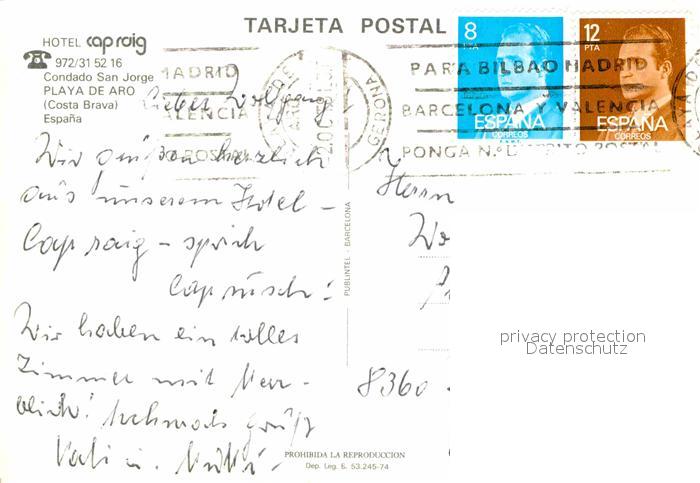 TARJETA POSTAL
HOTEL cap roig
972/31 52 16
Condado San Jorge
PLAYA DE ARO
(Costa Brava)
España
MADRID
VALENCIA
POSTAL
GERONA
PARA BILBAO MADRID
BARCELONA Y VALENCIA
PONGA N.º DISTRITO POSTAL
8 PTA
ESPAÑA
CORREOS
12 PTA
ESPAÑA
CORREOS
Lieber Wolfgang!
Wir grüßen herzlich
aus unserem Hotel -
Cap raig - sprich
Cap rutsch!
Wir haben ein tolles
Zimmer mit Meer-
blick! Nochmals Grüß
Vati u. Mutti
PUBLINTEL - BARCELONA
Herrn
8360
privacy protection
Datenschutz
PROHIBIDA LA REPRODUCCION
Dep. Leg. B. 53.245-74